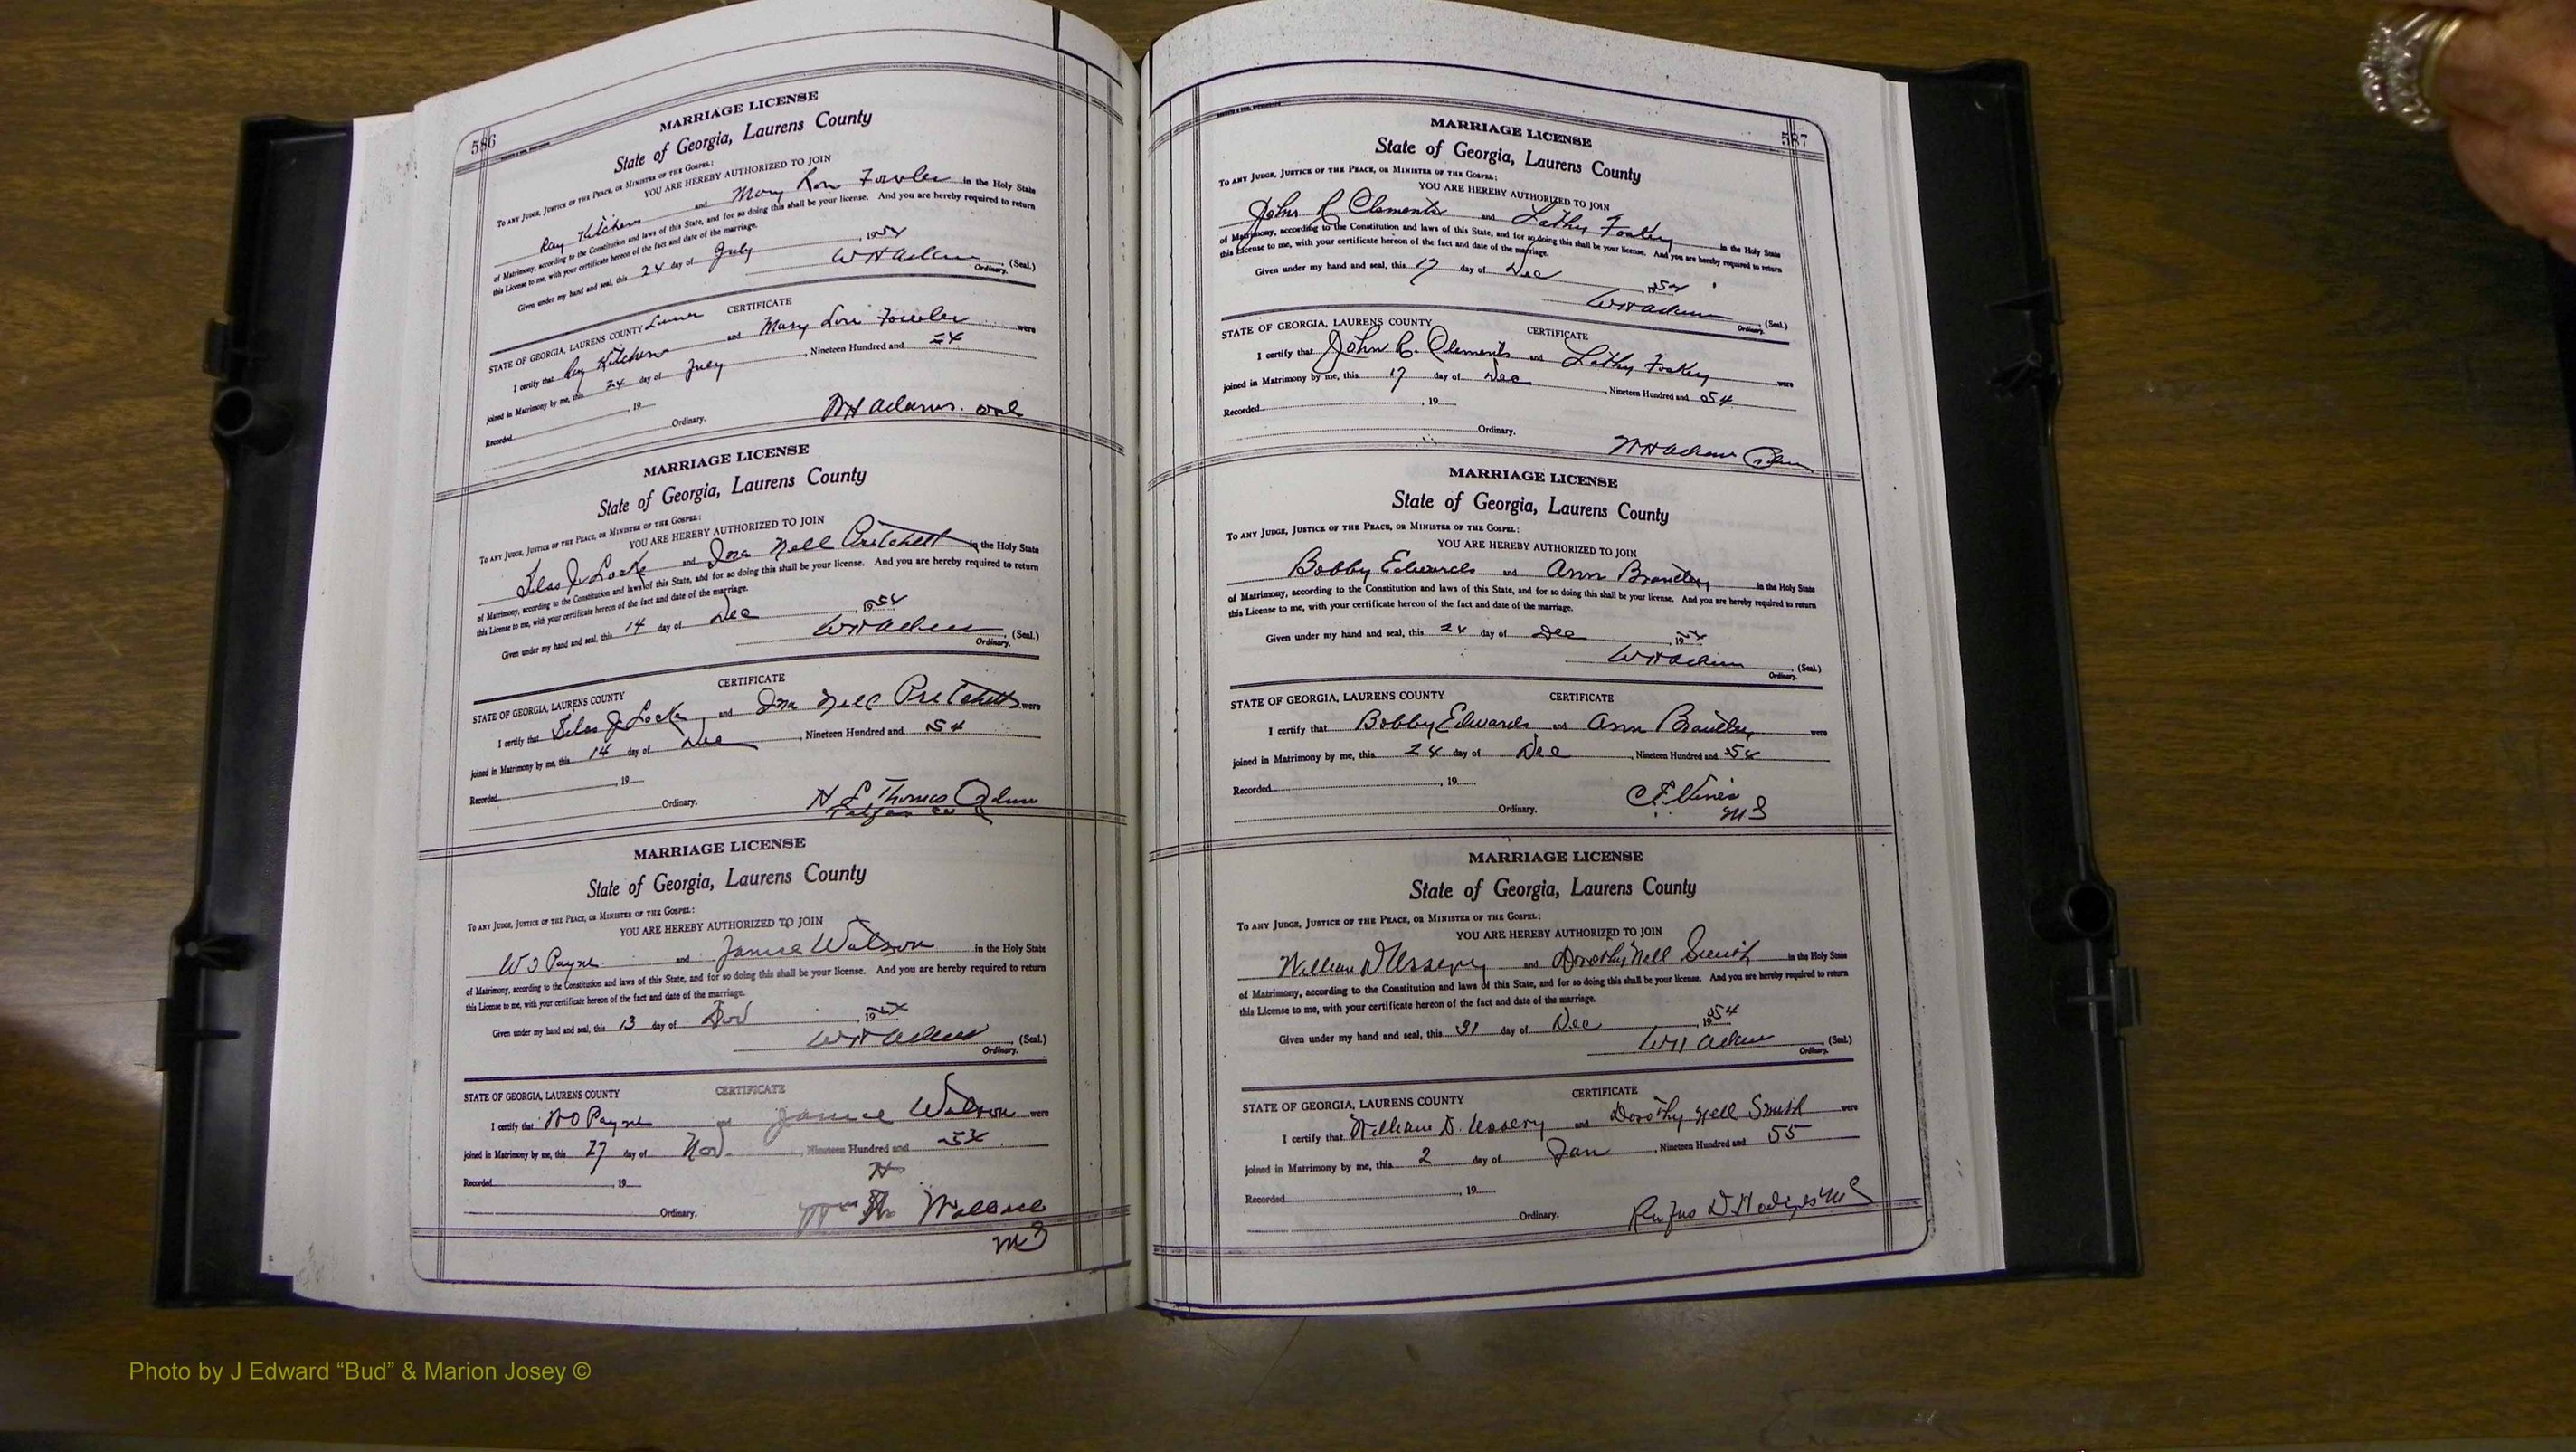 586
MARRIAGE LICENSE
State of Georgia, Laurens County
To any Judge, Justice of the Peace, or Minister of the Gospel:
YOU ARE HEREBY AUTHORIZED TO JOIN
Ray Kitchens and Mary Lou Fowler in the Holy State
of Matrimony, according to the Constitution and laws of this State, and for so doing this shall be your license. And you are hereby required to return
this License to me, with your certificate hereon of the fact and date of the marriage.
Given under my hand and seal, this 24 day of July, 1954
WH Adams (Seal.)
Ordinary.
CERTIFICATE
STATE OF GEORGIA, LAURENS COUNTY
I certify that Ray Kitchens and Mary Lou Fowler were
joined in Matrimony by me, this 24 day of July, Nineteen Hundred and 54
Recorded , 19
Ordinary.
WH Adams
MARRIAGE LICENSE
State of Georgia, Laurens County
To any Judge, Justice of the Peace, or Minister of the Gospel:
YOU ARE HEREBY AUTHORIZED TO JOIN
Silas J Locke and Ina Nell Pritchett in the Holy State
of Matrimony, according to the Constitution and laws of this State, and for so doing this shall be your license. And you are hereby required to return
this License to me, with your certificate hereon of the fact and date of the marriage.
Given under my hand and seal, this 14 day of Dec, 1954
WH Adams (Seal.)
Ordinary.
CERTIFICATE
STATE OF GEORGIA, LAURENS COUNTY
I certify that Silas J Locke and Ina Nell Pritchett were
joined in Matrimony by me, this 14 day of Dec, Nineteen Hundred and 54
Recorded , 19
Ordinary.
H L Thomas
Telfair Co
MARRIAGE LICENSE
State of Georgia, Laurens County
To any Judge, Justice of the Peace, or Minister of the Gospel:
YOU ARE HEREBY AUTHORIZED TO JOIN
W O Payne and Janice Watson in the Holy State
of Matrimony, according to the Constitution and laws of this State, and for so doing this shall be your license. And you are hereby required to return
this License to me, with your certificate hereon of the fact and date of the marriage.
Given under my hand and seal, this 13 day of Nov, 1954
WH Adams (Seal.)
Ordinary.
CERTIFICATE
STATE OF GEORGIA, LAURENS COUNTY
I certify that W O Payne and Janice Watson were
joined in Matrimony by me, this 27 day of Nov., Nineteen Hundred and 54
Recorded , 19
H
Ordinary.
Wm Wallace
MG
587
MARRIAGE LICENSE
State of Georgia, Laurens County
To any Judge, Justice of the Peace, or Minister of the Gospel:
YOU ARE HEREBY AUTHORIZED TO JOIN
John R Clements and Lathy Foskey in the Holy State
of Matrimony, according to the Constitution and laws of this State, and for so doing this shall be your license. And you are hereby required to return
this License to me, with your certificate hereon of the fact and date of the marriage.
Given under my hand and seal, this 17 day of Dec, 1954
WH Adams (Seal.)
Ordinary.
CERTIFICATE
STATE OF GEORGIA, LAURENS COUNTY
I certify that John R. Clements and Lathy Foskey were
joined in Matrimony by me, this 17 day of Dec, Nineteen Hundred and 54
Recorded , 19
Ordinary.
WH Adams
MARRIAGE LICENSE
State of Georgia, Laurens County
To any Judge, Justice of the Peace, or Minister of the Gospel:
YOU ARE HEREBY AUTHORIZED TO JOIN
Bobby Edwards and Ann Brantley in the Holy State
of Matrimony, according to the Constitution and laws of this State, and for so doing this shall be your license. And you are hereby required to return
this License to me, with your certificate hereon of the fact and date of the marriage.
Given under my hand and seal, this 24 day of Dec, 1954
WH Adams (Seal.)
Ordinary.
CERTIFICATE
STATE OF GEORGIA, LAURENS COUNTY
I certify that Bobby Edwards and Ann Brantley were
joined in Matrimony by me, this 24 day of Dec, Nineteen Hundred and 54
Recorded , 19
Ordinary.
C F Vines
MG
MARRIAGE LICENSE
State of Georgia, Laurens County
To any Judge, Justice of the Peace, or Minister of the Gospel:
YOU ARE HEREBY AUTHORIZED TO JOIN
William D Ussery and Dorothy Nell Smith in the Holy State
of Matrimony, according to the Constitution and laws of this State, and for so doing this shall be your license. And you are hereby required to return
this License to me, with your certificate hereon of the fact and date of the marriage.
Given under my hand and seal, this 31 day of Dec, 1954
WH Adams (Seal.)
Ordinary.
CERTIFICATE
STATE OF GEORGIA, LAURENS COUNTY
I certify that William D. Ussery and Dorothy Nell Smith were
joined in Matrimony by me, this 2 day of Jan, Nineteen Hundred and 55
Recorded , 19
Ordinary.
Rufus D. Hodges MG
Photo by J Edward “Bud” & Marion Josey ©